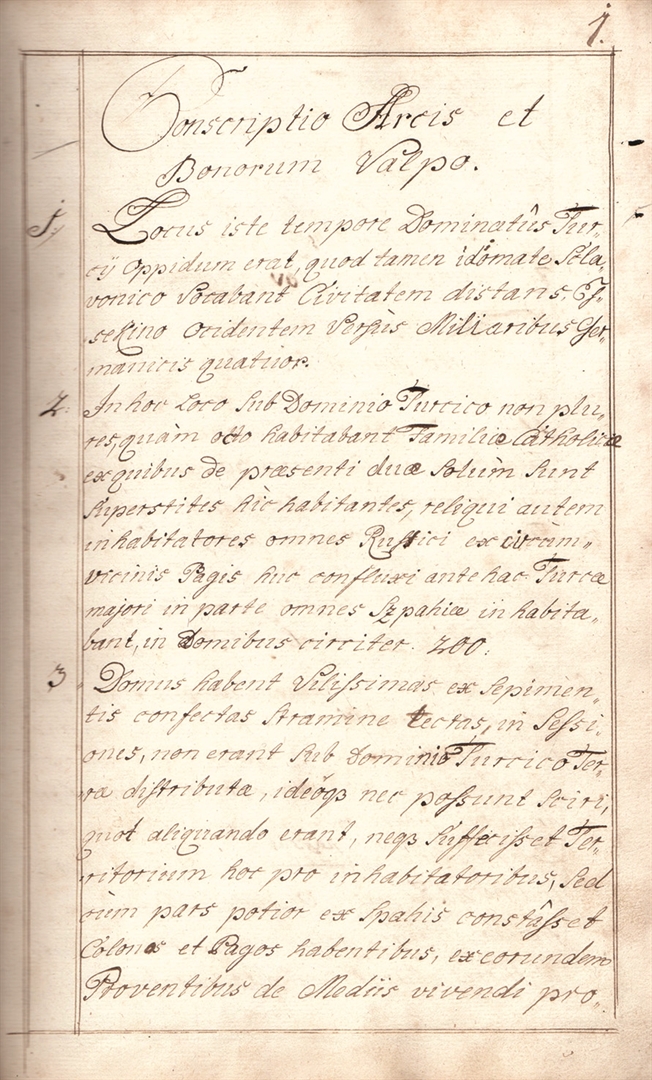 1.
Conscriptio Arcis et
Bonorum Valpo.
1. Locus iste tempore Dominatûs Tur„
cÿ oppidum erat, quod tamen idiomate Scla„
vonico vocabant Civitatem distans.
sekino Ocidentem versùs Miliaribus Ger„
manicis quatuor.
2. In hoc Loco sub Dominio Turcico non plu„
res, quàm octo habitabant Familiæ Catholicæ
ex quibus de præsenti duæ solùm sunt
superstites hìc habitantes, reliqui autem
inhabitatores omnes Rustici ex circùm„
vicinis Pagis huc confluxi ante hac Turcæ
majori in parte omnes Szpahiæ inhabita„
bant, in domibus circiter. 200.
3 Domus habent Vilissimas ex sepimen„
tis confectas stramine tectas, in Sessi„
ones, non erant sub Dominio Turcico Ter„
ræ distributæ, ideoqȝ nec possunt sciri,
quot aliquando erant, neqȝ suffecisset Ter„
ritorium hoc pro inhabitatoribus, sed
cùm pars potior ex Spahis constâsset
Colonos et Pagos habentibus, ex eorundem
Proventibus de Mediis vivendi pro„